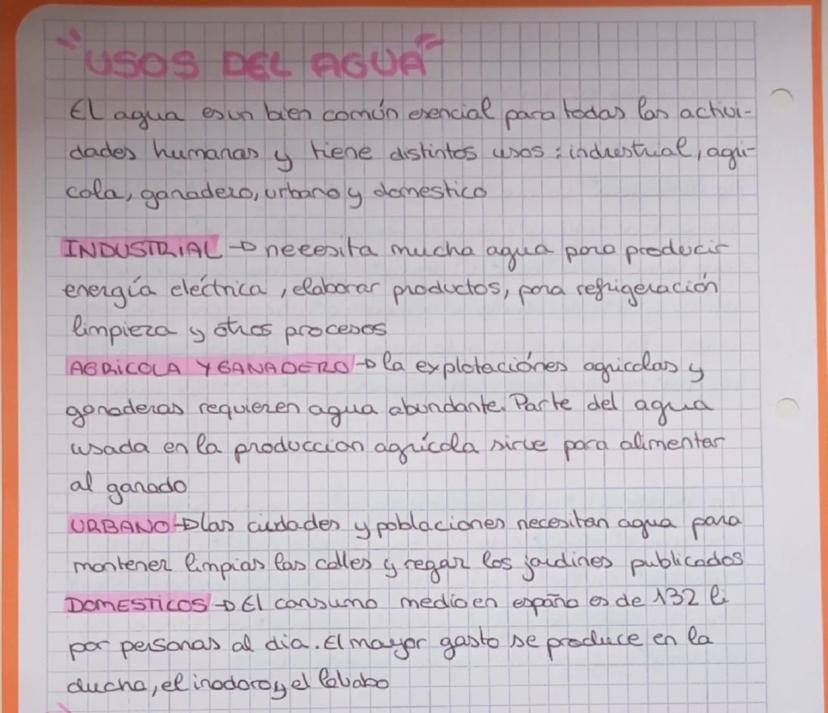 "USOS DEL AGUA"
El agua es un bien común esencial para todas las activi-
dades humanas y tiene distintos usos: industrial, agri-
cola, ganadero, urbano y domestico
INDUSTRIAL → necesita mucha agua para producir
energía eléctrica, elaborar productos, para refrigeración
limpieza y otros procesos
AGRICOLA Y GANADERO → la explotaciónes agricolas y
ganaderas requieren agua abundante. Parte del agua
usada en la produccion agrícola sirve para alimentar
al ganado
URBANO → las cuidades y poblaciones necesitan agua para
mantener limpias las calles y regar los jardines publicados
DOMESTICOS → El consumo medio en españa es de 132 li
por personas al dia. El mayor gasto se produce en la
ducha, el inodoro y el lavabo